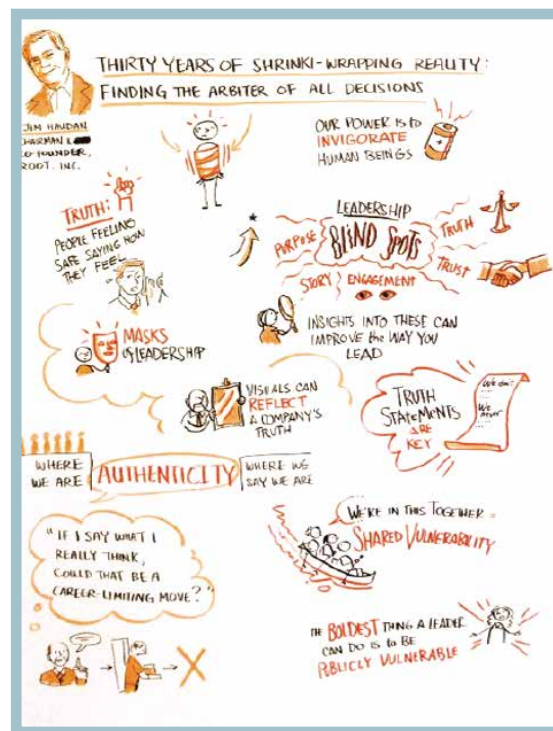 THIRTY YEARS OF SHRINKI-WRAPPING REALITY:
FINDING THE ARBITER OF ALL DECISIONS
JIM HAUDAN
CHAIRMAN &
CO-FOUNDER,
ROOT. INC.
OUR POWER IS to
INVIGORATE
HUMAN BEINGS
TRUTH:
PEOPLE FEELING
SAFE SAYING HOW
THEY FEEL
LEADERSHIP
BLIND SPOTS
PURPOSE
TRUTH
TRUST
STORY
ENGAGEMENT
INSIGHTS INTO THESE CAN
IMPROVE the WAY YOU
LEAD
MASKS
of LEADERSHIP
VISUALS CAN
REFLECT
A COMPANY'S
TRUTH
TRUTH
STATEMENTS
ARE
KEY
We don't
We
never
WHERE
WE ARE
AUTHENTICITY
WHERE WE
SAY WE ARE
"IF I SAY WHAT I
REALLY THINK,
COULD THAT BE A
CAREER-LIMITING MOVE?"
WE'RE IN THIS TOGETHER
SHARED VULNERABILITY
THE BOLDEST THING A LEADER
CAN DO IS to BE
PUBLICLY VULNERABLE